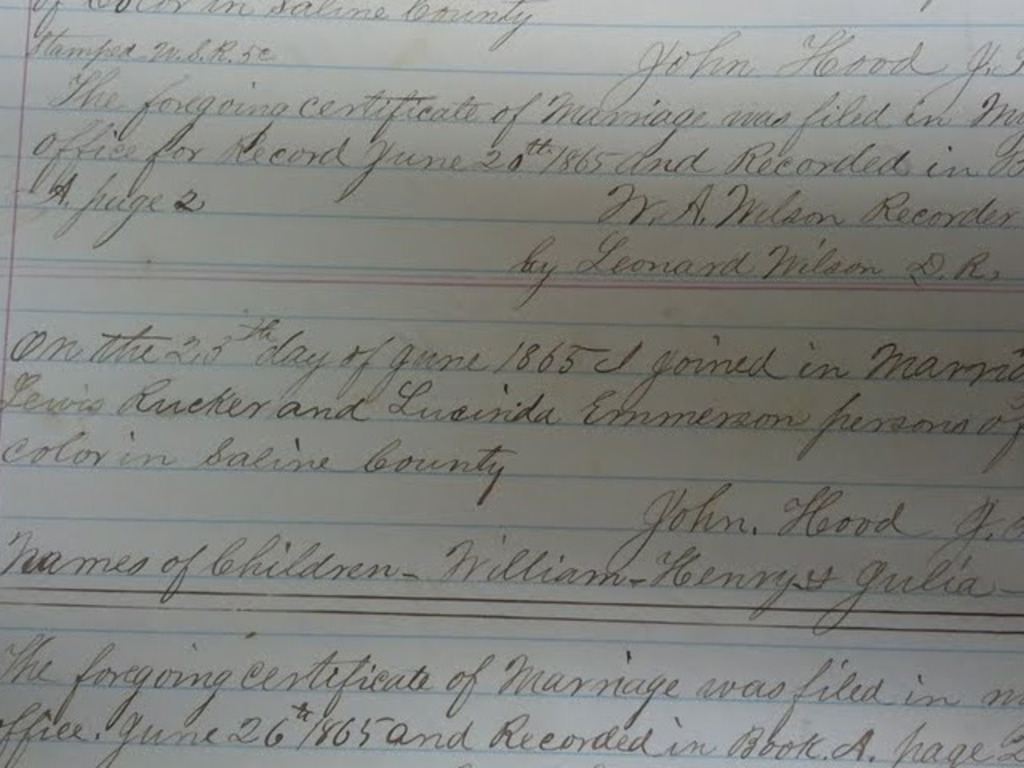 of Color in Saline County
Stamped U.S.R. 5c
John. Hood J.
The foregoing certificate of Marriage was filed in My
office for Record June 20th 1865 and Recorded in
A. page 2
W. A. Wilson Recorder
by Leonard Wilson D. R.
On the 25th day of June 1865 I joined in
Lewis Rucker and Lucinda Emmerson persons of
color in Saline County
John. Hood J.
Names of Children - William - Henry & Julia -
The foregoing certificate of Marriage was filed in
office. June 26th 1865 and Recorded in Book. A. page 2